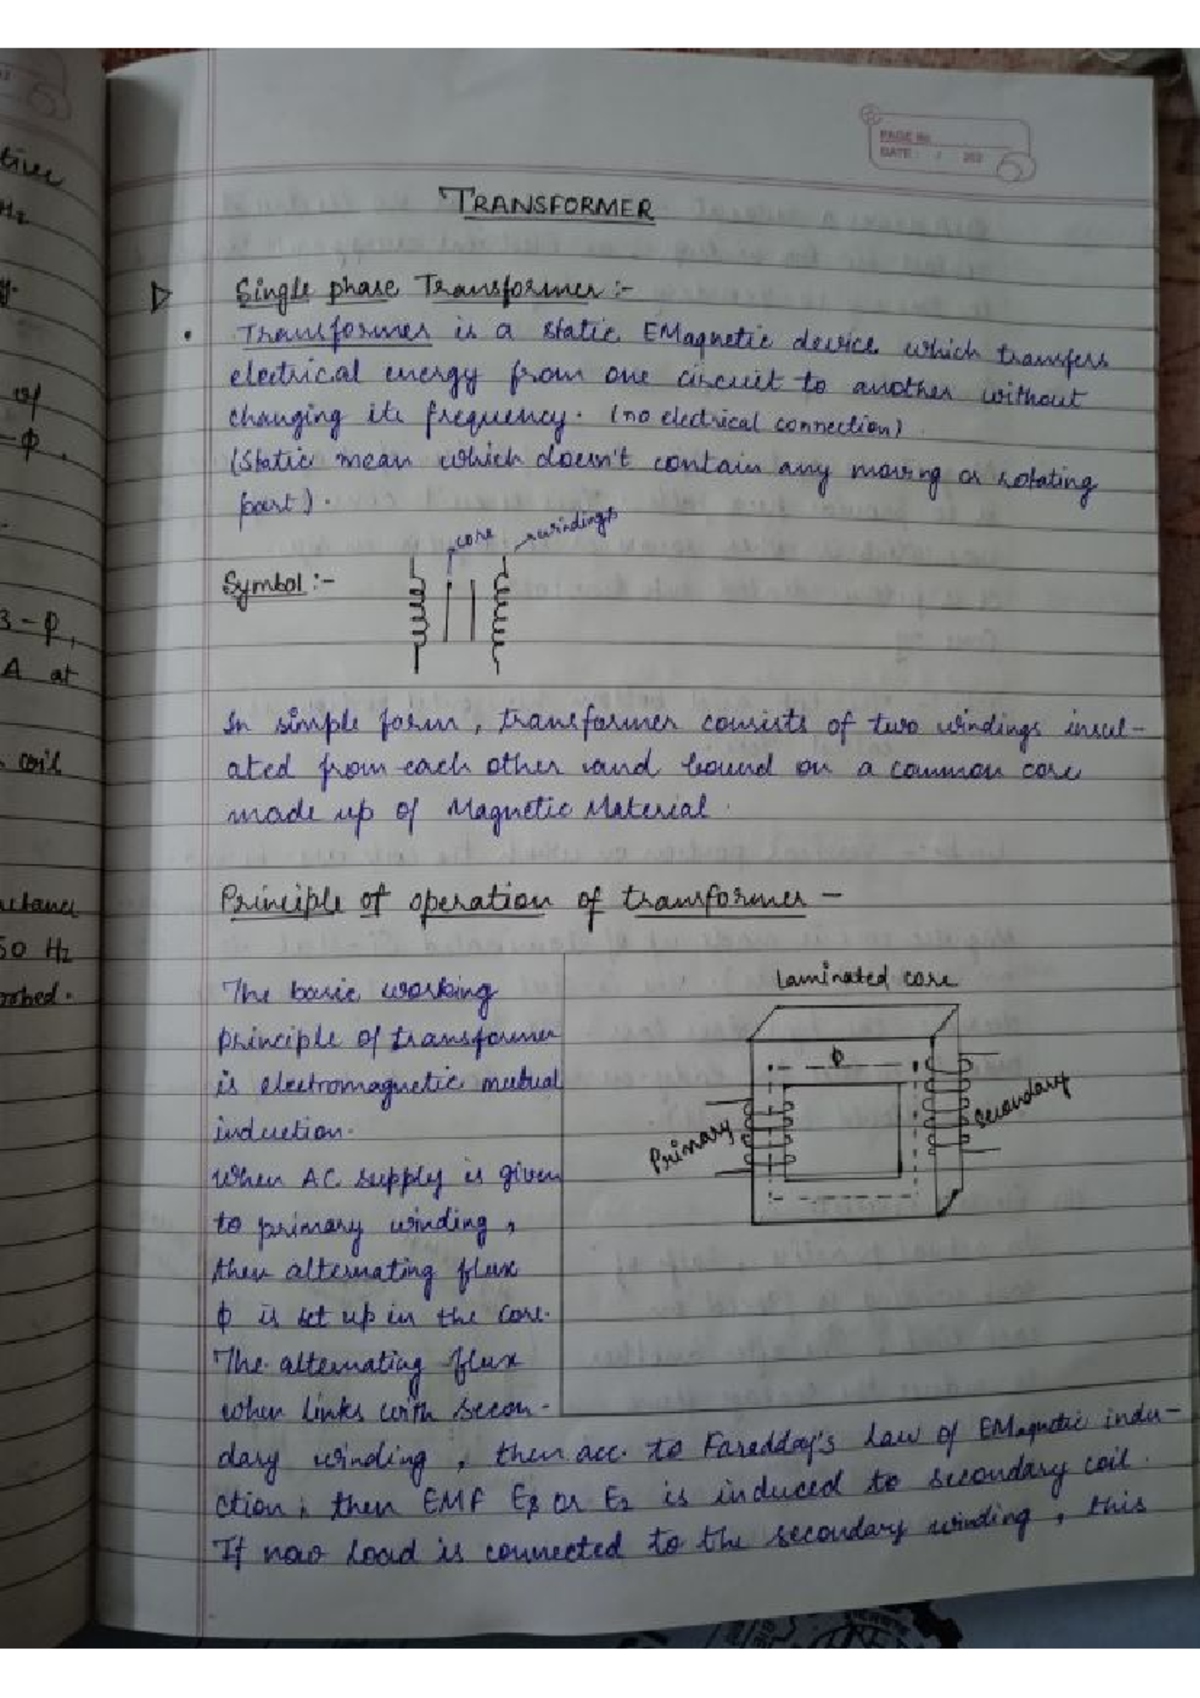 PAGE No
DATE: / 202
TRANSFORMER
Single phase Transformer :-
• Transformer is a static EMagnetic device which transfers
electrical energy from one circuit to another without
changing its frequency. (no electrical connection)
(Static mean which doesn't contain any moving or rotating
part).
core windings
Symbol :-
In simple form, transformer consists of two windings insul-
ated from each other and bound on a common core
made up of Magnetic Material.
Principle of operation of transformer -
Laminated core
ϕ
Primary
Secondary
The basic working
principle of transformer
is electromagnetic mutual
induction.
When AC supply is given
to primary winding,
then alternating flux
ϕ is set up in the core.
The alternating flux
when links with secon-
dary winding, then acc. to Faradday's Law of EMagnetic indu-
ction, then EMF or E2 is induced to secondary coil.
If now Load is connected to the secondary winding, this
tive
Hz
y.
of
-ϕ.
3-ϕ,
A at
coil
actance
50 Hz